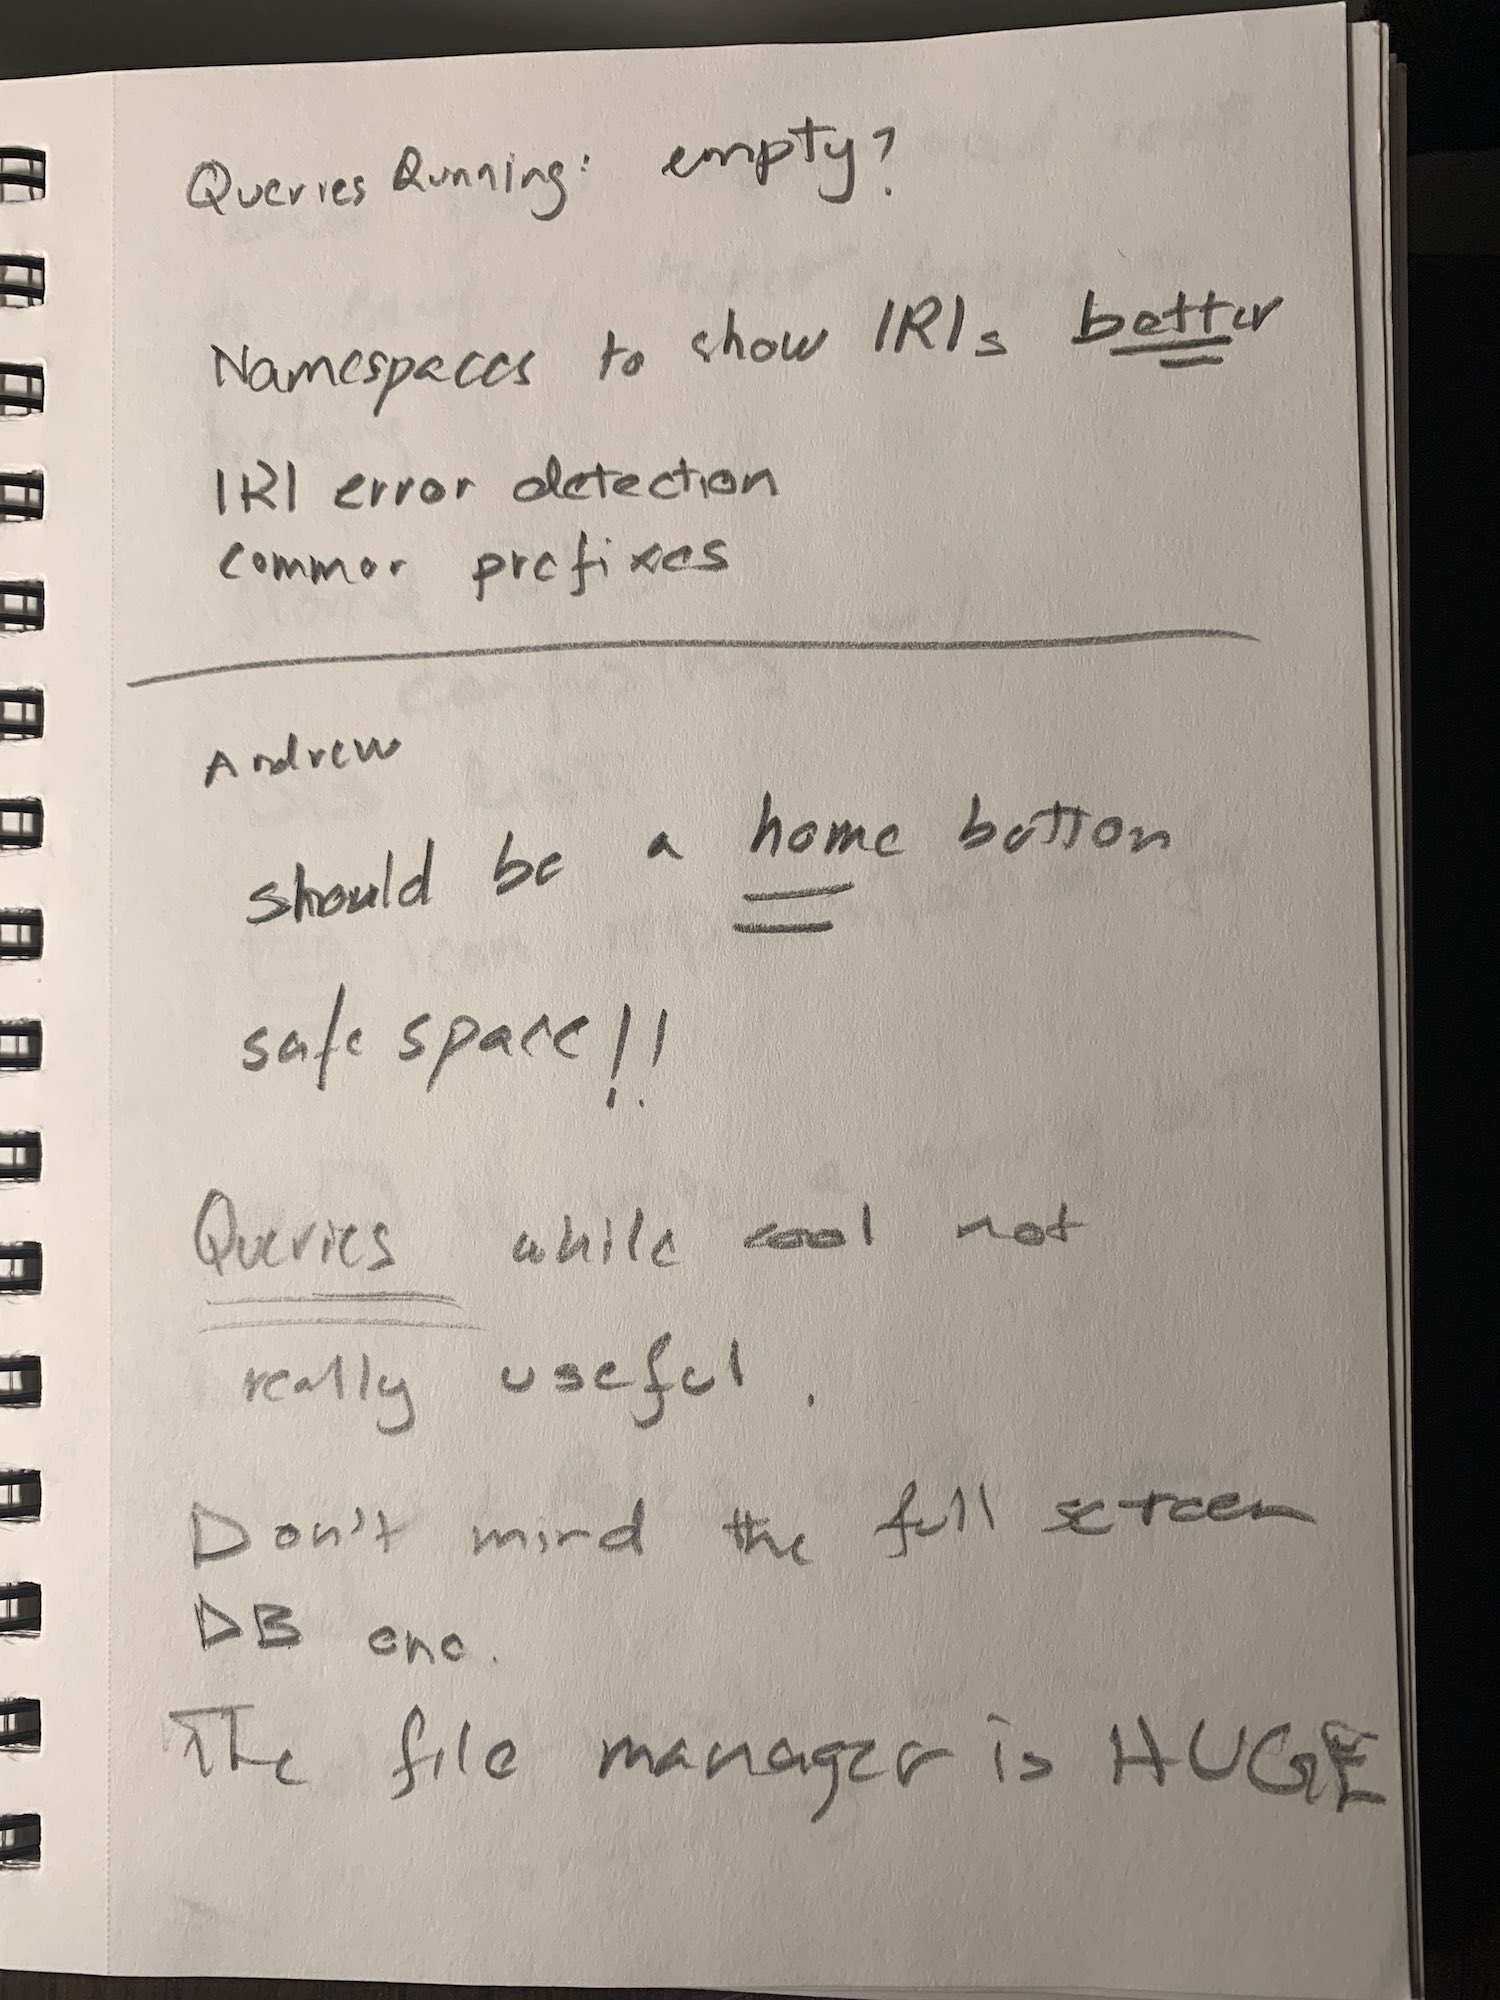 Queries Running: empty?
Namespaces to show IRIs better
IRI error detection
common prefixes
Andrew
should be a home button
safe space!!
Queries while cool not
really useful.
Don't mind the full screen
DB one.
The file manager is HUGE